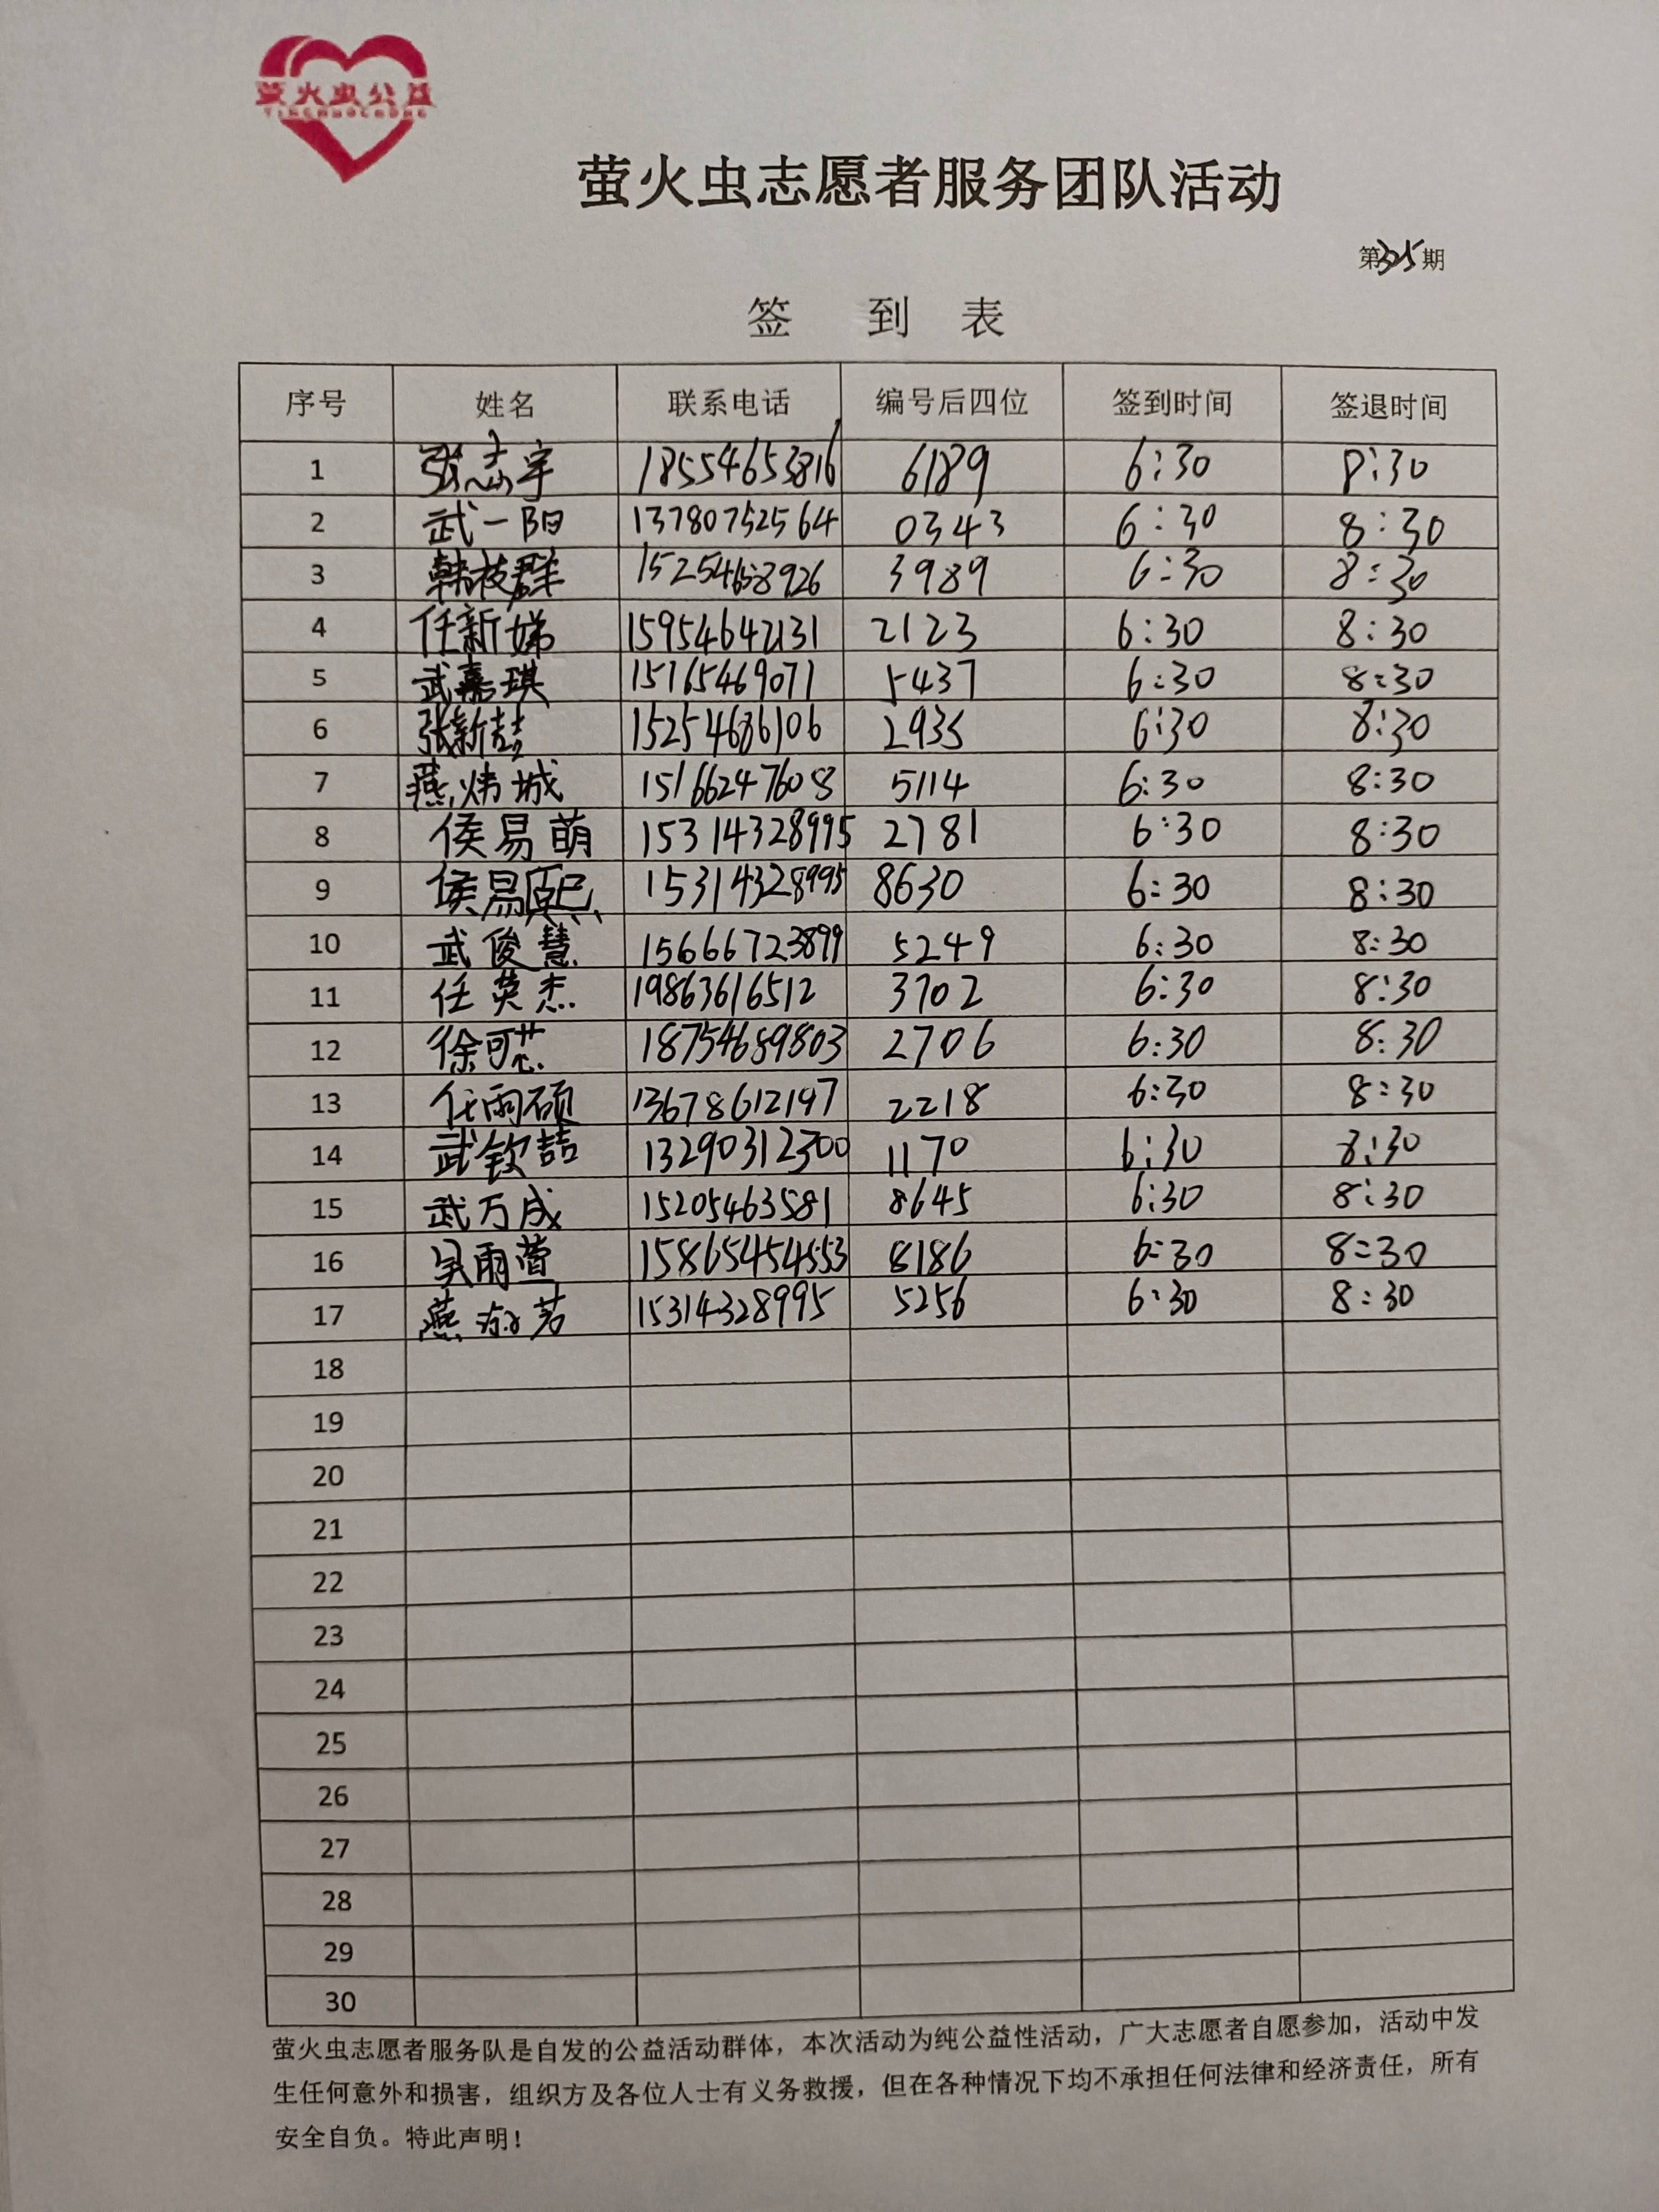 萤火虫公益
YINGHUOCHONG
萤火虫志愿者服务团队活动
第325期
签 到 表
序号 姓名 联系电话 编号后四位 签到时间 签退时间
1 张志宇 18554653816 6189 6:30 8:30
2 武一阳 13780752564 0343 6:30 8:30
3 韩枝群 15254658926 3989 6:30 8:30
4 任新娣 15954642131 2123 6:30 8:30
5 武嘉琪 15165469071 5437 6:30 8:30
6 张新喆 15254686106 2935 6:30 8:30
7 燕炜城 15166247608 5114 6:30 8:30
8 侯易萌 15314328995 2781 6:30 8:30
9 侯易熙 15314328995 8630 6:30 8:30
10 武俊慧 15666723899 5249 6:30 8:30
11 任英杰 19863616512 3702 6:30 8:30
12 徐可芯 18754689803 2706 6:30 8:30
13 任雨硕 13678612197 2218 6:30 8:30
14 武钦喆 13290312300 1170 6:30 8:30
15 武万成 15205463581 8645 6:30 8:30
16 吴雨萱 15865454553 8186 6:30 8:30
17 燕 若 15314328995 5256 6:30 8:30
18
19
20
21
22
23
24
25
26
27
28
29
30
萤火虫志愿者服务队是自发的公益活动群体，本次活动为纯公益性活动，广大志愿者自愿参加，活动中发
生任何意外和损害，组织方及各位人士有义务救援，但在各种情况下均不承担任何法律和经济责任，所有
安全自负。特此声明！